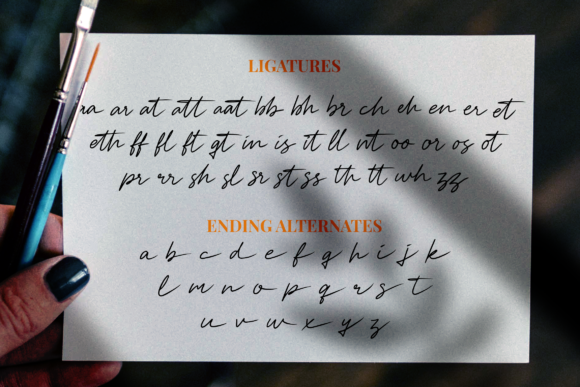 LIGATURES
aa ar at att aat bb bh br ch eh en er et
eth ff fl ft gt in is it ll nt oo or os ot
pr rr sh sl sr st ss th tt wh zz
ENDING ALTERNATES
a b c d e f g h i j k
l m n o p q r s t
u v w x y z